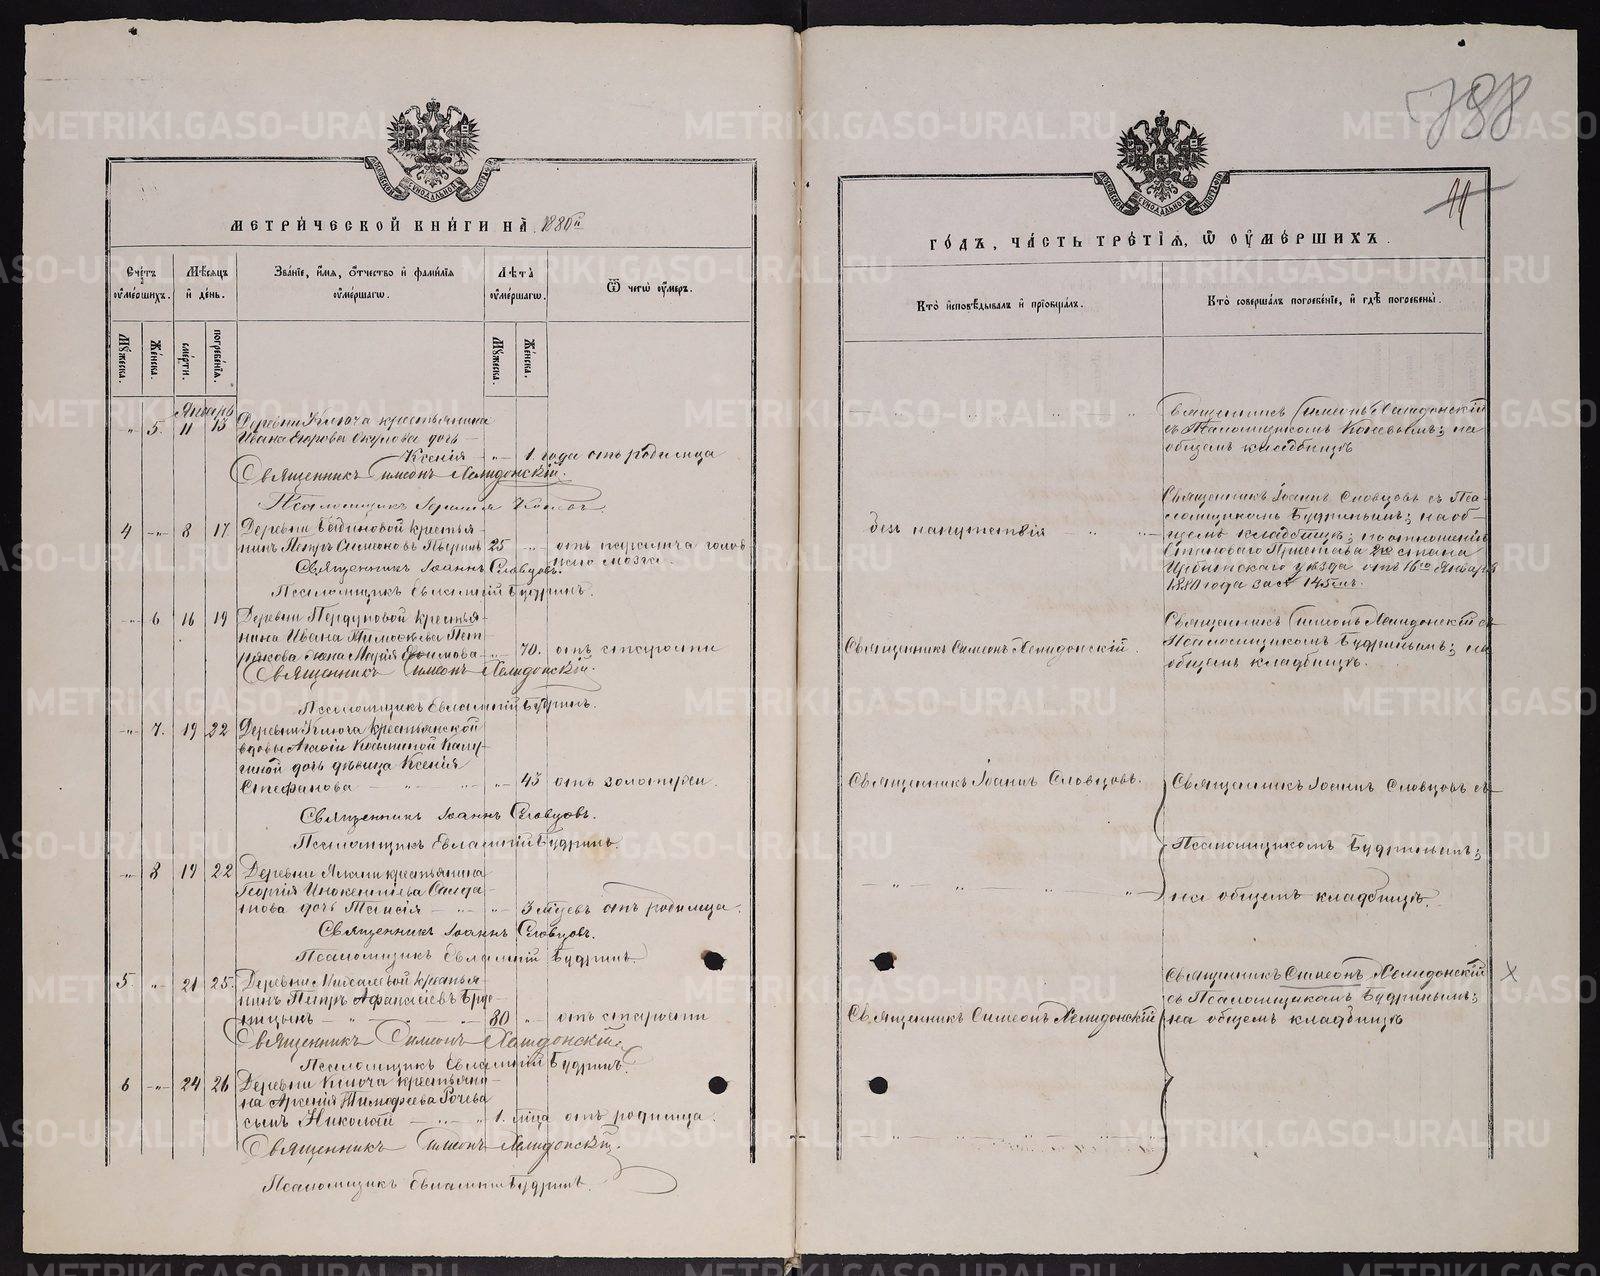 МЕТРИЧЕСКОЙ КНИГИ НА 1880й
Счетъ оумершихъ.
Мѣсяцъ и день.
Званіе, имя, отчество и фамилія оумершагѡ.
Лѣта оумершагѡ.
Ѿ чегѡ оумеръ.
Мужеска.
Женска.
смерти.
погребенія.
Мужеска.
Женска.
Январь
„ 5. 11 13 Деревни Ключа крестьянина
Ивана Окулова дочь
Ксенія 1. года отъ родимца
Священникъ Симеонъ Нелидонскій.
Псаломщикъ
4 „ 8 17 Деревни крестья-
нинъ Петръ Симеоновъ 25 отъ паралича голов
наго мозга.
Священникъ Іоаннъ Словцовъ.
Псаломщикъ Евлампій Будринъ.
„ 6 16 19 Деревни крестья-
нина Ивана
жена Марія Ефимова 70. отъ старости
Священникъ Симеонъ Нелидонскій.
Псаломщикъ Евлампій Будринъ.
„ 7. 19 22 Деревни Ключа крестьянской
вдовы Косьминой
дочь дѣвица Ксенія
Стефанова 43 отъ золотухи.
Священникъ Іоаннъ Словцовъ.
Псаломщикъ Евлампій Будринъ.
„ 8 19 22 Деревни крестьянина
Георгія
дочь Таисія 3 мѣсяцевъ отъ родимца.
Священникъ Іоаннъ Словцовъ.
Псаломщикъ Евлампій Будринъ.
5. „ 21 25. Деревни крестья-
нинъ Петръ Афанасіевъ Брус-
ницынъ 80 отъ старости
Священникъ Симеонъ Нелидонскій.
Псаломщикъ Евлампій Будринъ.
6 „ 24 26 Деревни Ключа крестьяни-
на Арсенія Тимофеева
сынъ Николай 1. мѣсяца отъ родимца.
Священникъ Симеонъ Нелидонскій.
Псаломщикъ Евлампій Будринъ.
788
11
ГОДЪ, ЧАСТЬ ТРЕТІЯ, Ѿ ОУМЕРШИХЪ.
Кто исповѣдывалъ и пріобщалъ.
Кто совершалъ погребеніе, и гдѣ погребены.
Священникъ Симеонъ Нелидонскій
съ Псаломщикомъ на
общемъ кладбищѣ
безъ напутствія
Священникъ Іоаннъ Словцовъ съ Пса-
ломщикомъ Будринымъ; на об-
щемъ кладбищѣ; по отношенію
Становаго Пристава 2го стана
Ирбитскаго уѣзда отъ 16го Января
года за № 145
Священникъ Симеонъ Нелидонскій.
Священникъ Симеонъ Нелидонскій съ
Псаломщикомъ Будринымъ; на
общемъ кладбищѣ.
Священникъ Іоаннъ Словцовъ.
Священникъ Іоаннъ Словцовъ съ
Псаломщикомъ Будринымъ;
на общемъ кладбищѣ.
Священникъ Симеонъ Нелидонскій
Священникъ Симеонъ Нелидонскій
съ Псаломщикомъ Будринымъ;
на общемъ кладбищѣ
METRIKI.GASO-URAL.RU